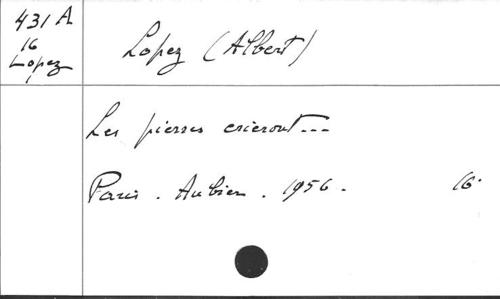 431 A
16
Lopez
Lopez (Albert)
Les pierres crieront...
Paris. Aubier. 1956. 16°